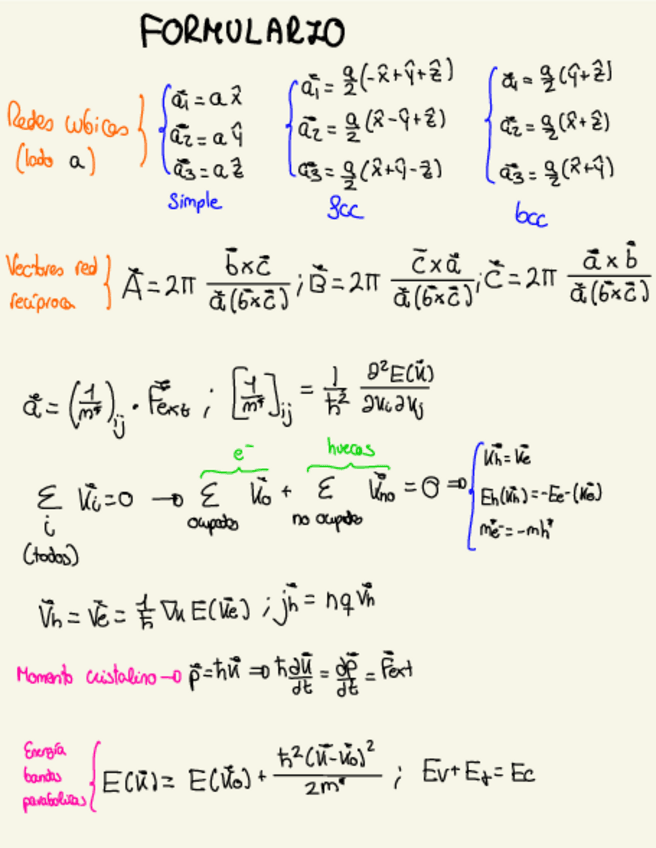 FORMULARIO
Redes cúbicas (lado a)
a⃗1 = a x̂
a⃗2 = a ŷ
a⃗3 = a ẑ
Simple
a⃗1 = a/2 (-x̂+ŷ+ẑ)
a⃗2 = a/2 (x̂-ŷ+ẑ)
a⃗3 = a/2 (x̂+ŷ-ẑ)
fcc
a⃗1 = a/2 (ŷ+ẑ)
a⃗2 = a/2 (x̂+ẑ)
a⃗3 = a/2 (x̂+ŷ)
bcc
Vectores red recíproca
A⃗ = 2π (b⃗×c⃗)/(a⃗(b⃗×c⃗)) ; B⃗ = 2π (c⃗×a⃗)/(a⃗(b⃗×c⃗)) ; C⃗ = 2π (a⃗×b⃗)/(a⃗(b⃗×c⃗))
a⃗ = (1/m*)ij · F⃗ext ; [1/m*]ij = 1/ħ² ∂²E(k⃗)/∂ki∂kj
e⁻ huecos
Σ k⃗i = 0 → Σ k⃗o + Σ k⃗no = 0 ⇒
i ocupados no ocupados
(todos)
k⃗h = k⃗e
Eh(k⃗h) = -Ee-(k⃗e)
m*e- = -mh*
v⃗h = v⃗e = 1/ħ ∇k E(k⃗e) ; j⃗h = nq v⃗h
Momento cristalino → p⃗ = ħk⃗ ⇒ ħ ∂k⃗/dt = dp⃗/dt = F⃗ext
Energía bandas parabólicas
E(k⃗) = E(k⃗o) + ħ²(k⃗-k⃗o)²/2m* ; Ev + Eg = Ec